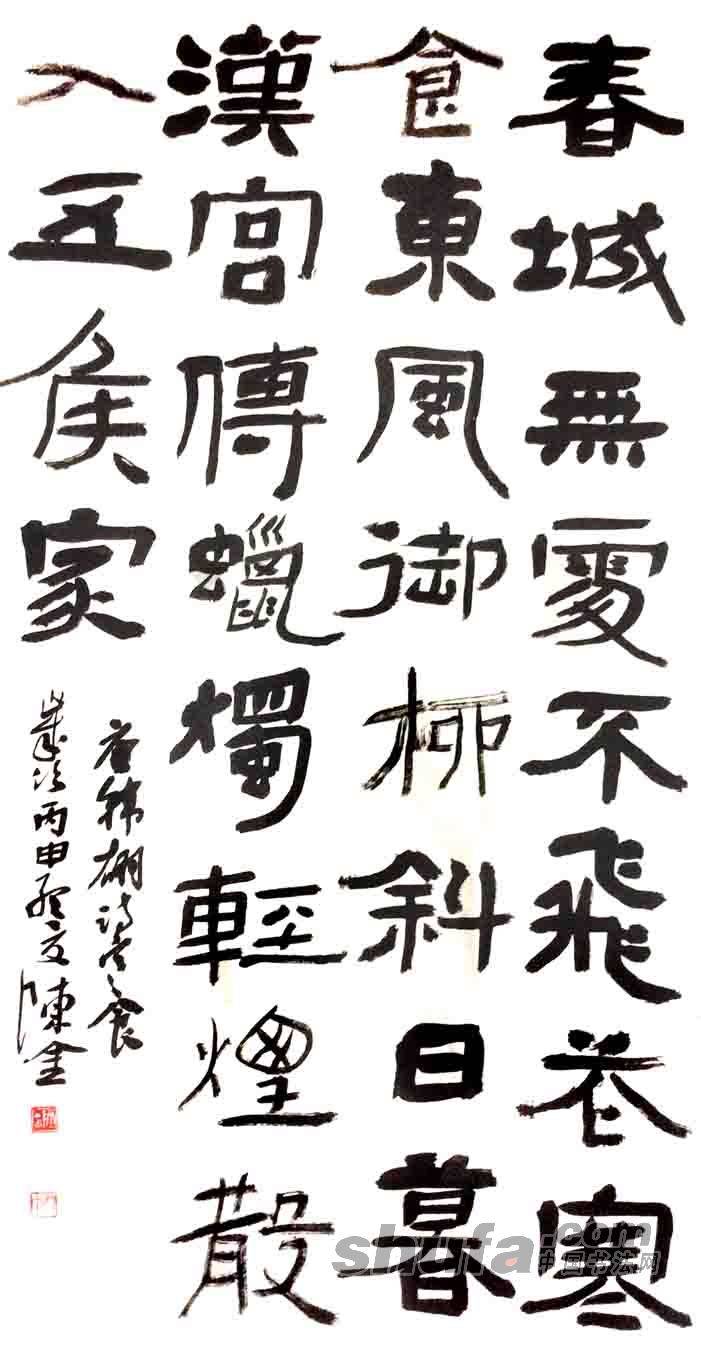 春城無處不飛花寒
食東風御柳斜日暮
漢宮傳蠟燭輕煙散
入五侯家
唐韓翃詩寒食
歲次丙申陳金
shufa.com
中国书法网